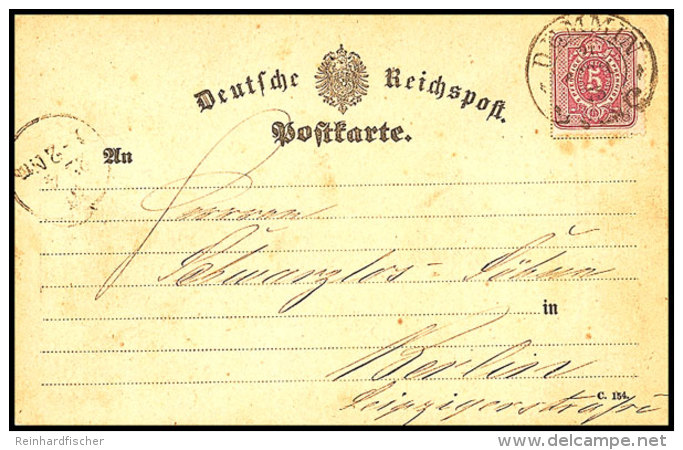 DEMMIN
5
Deutsche Reichspost.
Postkarte.
An
Herren
Schwarzlos- Söhne
in
Berlin
C. 154.
Leipzigerstraße
Reinhardfischer
delcampe.net